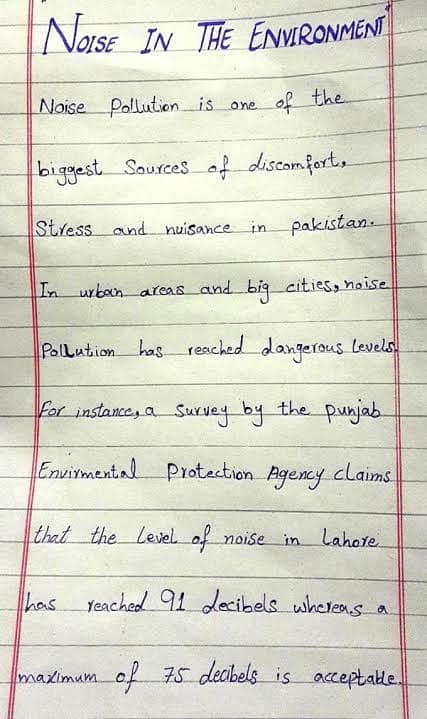 NOISE IN THE ENVIRONMENT"
Noise Pollution is one of the
biggest Sources of discomfort,
Stress and nuisance in pakistan.
In urban areas and big cities, noise
Pollution has reached dangerous levels.
For instance, a survey by the punjab
Envirmental Protection Agency claims
that the level of noise in Lahore
has reached 91 decibels whereas a
maximum of 75 decibels is acceptable.